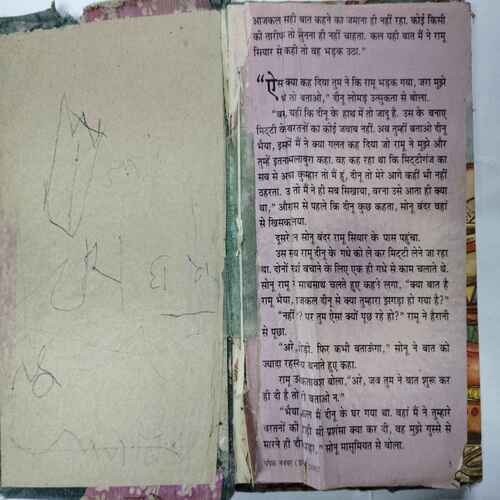 आजकल सही बात कहने का जमाना ही नहीं रहा. कोई किसी
की तारीफ तो सुनना ही नहीं चाहता. कल यही बात मैं ने रामू
सियार से कही तो वह भड़क उठा."
"ऐसा क्या कह दिया तुम ने कि रामू भड़क गया, जरा मुझे
तो बताओ," दीनू लोमड़ उत्सुकता से बोला.
"बस, यही कि दीनू के हाथ में तो जादू है. उस के बनाए
मिट्टी के बरतनों का कोई जवाब नहीं. अब तुम्हीं बताओ दीनू
भैया, इसमें मैं ने क्या गलत कह दिया जो रामू ने मुझे और
तुम्हें इतना भलाबुरा कहा. वह कह रहा था कि मिट्टीगंज का
सब से अच्छा कुम्हार तो मैं हूं, दीनू तो मेरे आगे कहीं भी नहीं
ठहरता. उसे तो मैं ने ही सब सिखाया, वरना उसे आता ही क्या
था," और इस से पहले कि दीनू कुछ कहता, सोनू बंदर वहां
से खिसक गया.
दूसरे दिन सोनू बंदर रामू सियार के पास पहुंचा.
उस समय रामू दीनू के गधे को ले कर मिट्टी लेने जा रहा
था. दोनों खर्च बचाने के लिए एक ही गधे से काम चलाते थे.
सोनू रामू के साथसाथ चलते हुए कहने लगा, "क्या बात है
रामू भैया, आजकल दीनू से क्या तुम्हारा झगड़ा हो गया है?"
"नहीं तो? पर तुम ऐसा क्यों पूछ रहे हो?" रामू ने हैरानी
से पूछा.
"अरे, छोड़ो. फिर कभी बताऊंगा," सोनू ने बात को
ज्यादा रहस्यमय बनाते हुए कहा.
रामू उत्सुकतावश बोला, "अरे, जब तुम ने बात शुरू कर
ही दी है तो बताओ न."
"भैया, कल मैं दीनू के घर गया था. वहां मैं ने तुम्हारे
बरतनों की थोड़ी सी प्रशंसा क्या कर दी, वह मुझे गुस्से से
मारने ही दौड़ पड़ा," सोनू मासूमियत से बोला.
चंपक